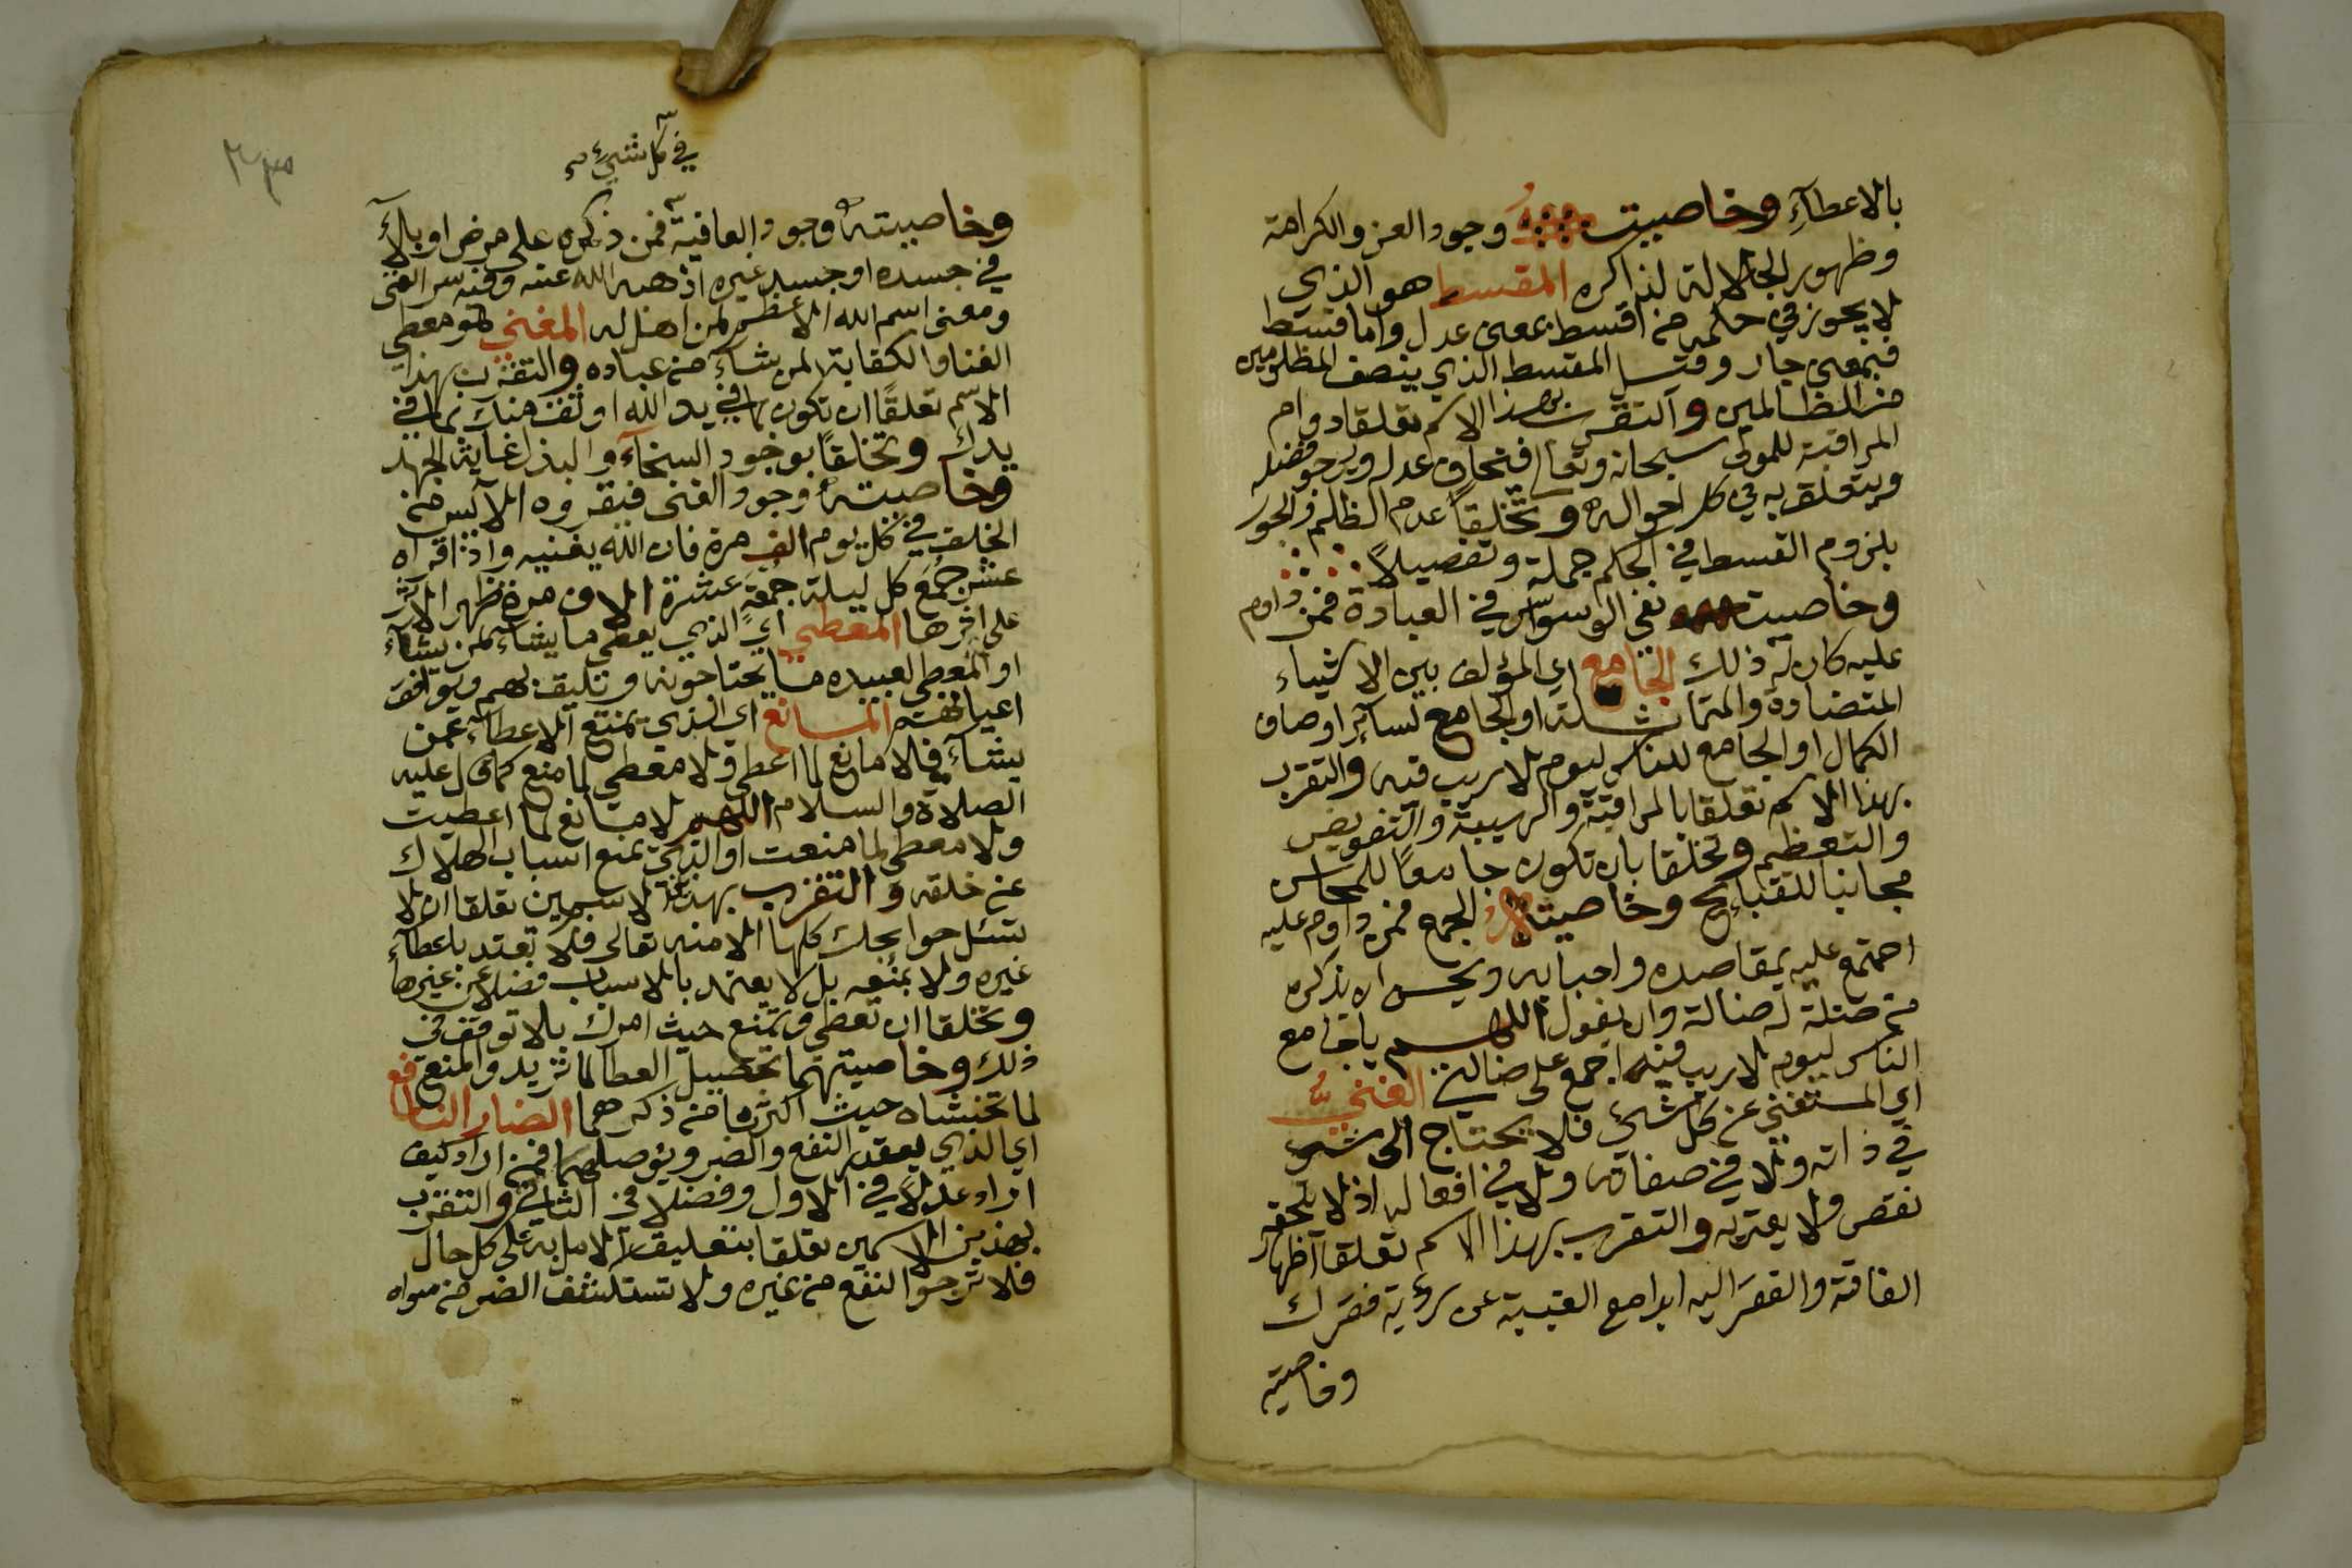 بالاعطآءِ وخاصيته وجود العز والكرامة
وظهور الجلالة لذاكره المقسط هو الذي
لا يجوز في حكمه من اقسط بمعنى عدل واما قسط
فبمعنى جار وقيل المقسط الذي ينصف المظلومين
من الظالمين والتقرب بهذا الاسم تعلقا دوام
المراقبة للمولى سبحانه وتعالى فتخاف عدله ويرجو فضله
ويتعلق به في كل احواله وتخلقاً عدم الظلم والجور
بلزوم القسط في الحكم جملة وتفصيلاً
وخاصيته نفي الوسواس في العبادة فمن داوم
عليه كان له ذلك الجامع اي المؤلف بين الاشياء
المتضادة والمتماثلة او الجامع لسائر اوصاف
الكمال او الجامع للناس ليوم لا ريب فيه والتقرب
بهذا الاسم تعلقا بالمراقبة والهيبة والتفويض
والتعظيم وتخلقا بان تكون جامعاً للمحاسن
مجانبا للقبايح وخاصيته الجمع فمن داوم عليه
اجتمع عليه بمقاصده واحبابه ويحسن ان يذكره
من ضلة له ضالة وان يقول اللهم يا جامع
الناس ليوم لا ريب فيه اجمع علي ضالتي الغني
اي المستغني عن كل شيء فلا يحتاج الى شيء
في ذاته ولا في صفاته ولا في افعاله اذ لا يلحقه
نقص ولا يعتريه والتقرب بهذا الاسم تعلقا اظهار
الفاقة والفقر اليه ابدا مع الغيبة عن رؤية فقرك
وخاصيته
في كل شيء
وخاصيته وجود العافية فمن ذكره على مرض او بلآء
في جسده او جسد غيره اذهبه الله عنه وفيه سر الغنى
ومعنى اسم الله الاعظم لمن اهل له المغني هو معطي
الغنا والكفاية لمن يشآء من عباده والتقرب بهذا
الاسم تعلقاً ان تكون بما في يد الله اوثق منك بما في
يدك وتخلقاً بوجود السخآء والبذل غاية الجهد
وخاصيته وجود الغنى فيقروه الآيس من
الخلق في كل يوم الف مرة فان الله يغنيه واذا قراه
عشر جمع كل ليلة جمعة عشرة الاف مرة ظهر الاثر
على اثرها المعطي اي الذي يعطي ما يشآء لمن يشآء
او المعطي لعبيده ما يحتاجونه ويليق بهم ويوافق
اعيانهم المانع اي الذي يمنع الاعطآء عمن
يشآء فلا مانع لما اعطى ولا معطي لما منع كما قال عليه
الصلاة والسلام اللهم لا مانع لما اعطيت
ولا معطي لما منعت او الذي يمنع اسباب الهلاك
عن خلقه والتقرب بهذين الاسمين تعلقا ان لا
تسئل حوايجك كلها الا منه تعالى فلا تعتد باعطآء
غيره ولا بمنعه بل لا يعتمد بالاسباب فضلا عن غيرها
وتخلقا ان تعطي وتمنع حيث امرك بلا توقف في
ذلك وخاصيتهما تحصيل العطا لما تريد والمنع
لما تخشاه حيث اكثرت من ذكرهما الضار النافع
اي الذي يقدر النفع والضر ويوصلهما فمن اراد كيف
اراد عدلاً في الاول وفضلا في الثاني والتقرب
بهذين الاسمين تعلقا بتعليق الامل به على كل حال
فلا ترجوا النفع من غيره ولا تستكشف الضر من سواه